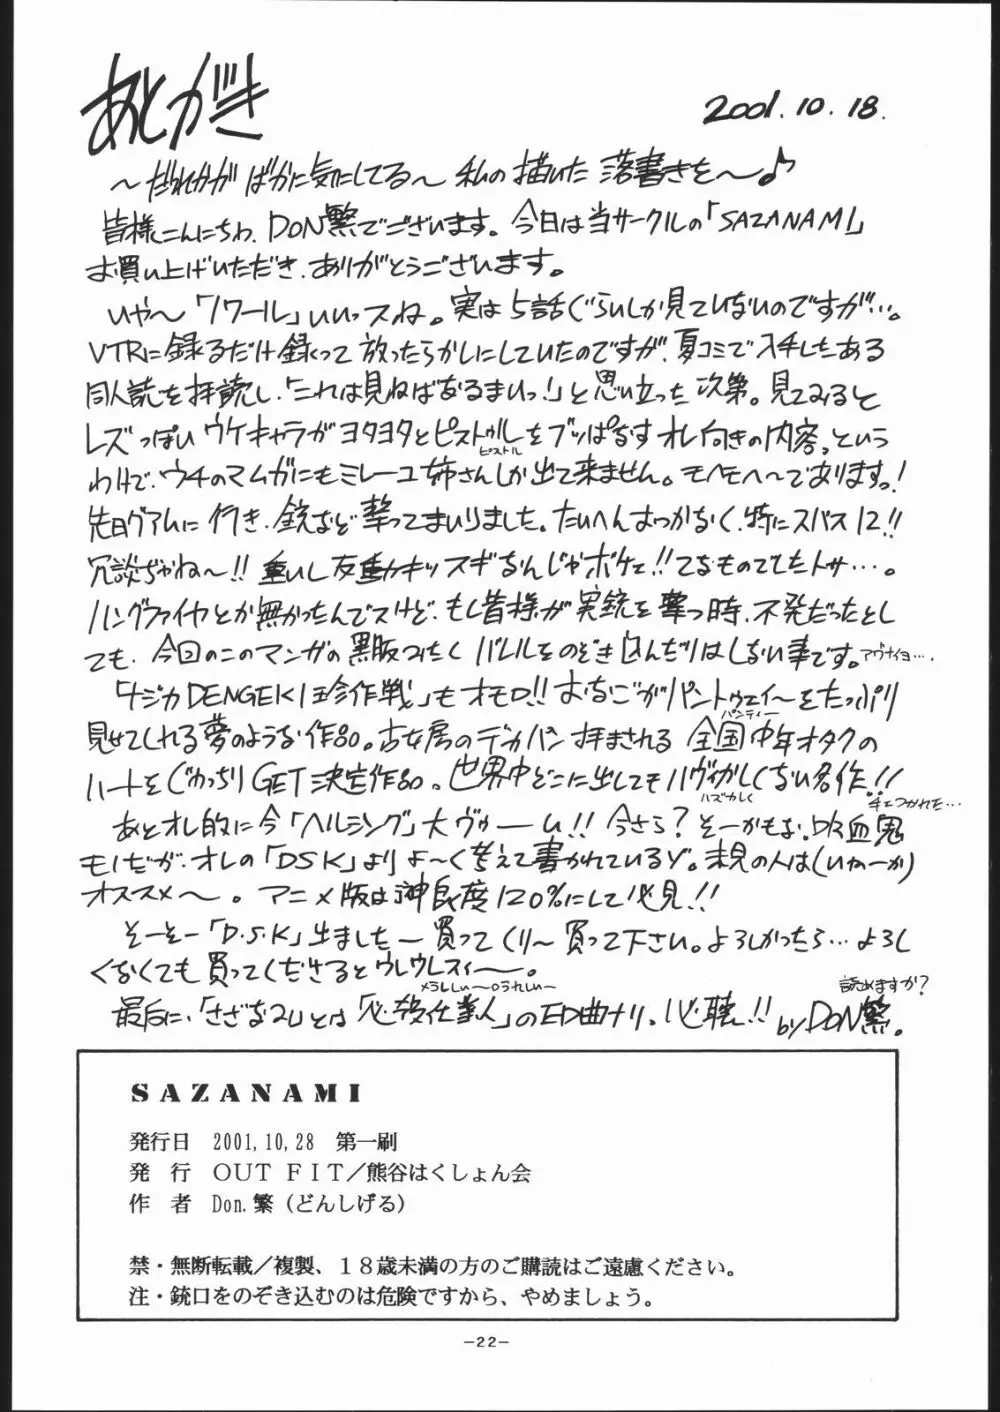 あとがき
2001.10.18.
〜だれかが ばかに気にしてる〜 私の描いた 落書きを〜♪
皆様こんにちわ、DON繁でございます。今日は当サークルの「SAZANAMI」
お買い上げいただき、ありがとうございます。
いや〜「ノワール」いいっスね。実は5話ぐらいしか見ていないのですが…。
VTRに録るだけ録って放ったらかしにしていたのですが、夏コミで入手したある
同人誌を拝読し、「これは見ねばなるまいっ!」と思い立った次第。見てみると
レズっぽいウケキャラがヨタヨタとピストゥルをブッぱなすオレ向きの内容。という
ピストル
わけで、ウチのマムガにもミレーユ姉さんしか出て来ません。モヘモヘ〜でありますっ!
先日グアムに行き、銃など撃ってまいりました。たいへんおっかなく、特にスパス12!!
冗談ぢゃね〜!! 重いし反動キッツスギなんじゃボケェ!! てなものでしたトサ…。
ハングファイヤとか無かったんでスけど、もし皆様が実銃を撃つ時、不発だったとし
ても、今回のこのマンガの黒服みたくバレルをのぞき込んだりはしない事です。アヴナイヨ…。
「ナジカDENGEKI珍作戦」もオモロ!! おなごがパントウェイ〜をたっぷり
パンティー
見せてくれる夢のような作品。古女房のデカパン拝まされる全国中年オタクの
ハートをぐわっちりGET決定作品。世界中どこに出してもハヴィかしくない名作!!
ハズカしく
手エつかれた…
あとオレ的に今「ヘルシング」大ヴゥーム!! 今さら?そーかもな。吸血鬼
モノだが、オレの「DSK」よりよ〜く考えて書かれているゾ。未見の人は(いねーか)
オススメ〜。アニメ版は沖良度120%にして必見!!
そーそー「D.S.K」出ました〜買ってくり〜買って下さい。よろしかったら…よろし
くなくても買ってくださるとウレウレスィ〜。
読めますか?
最后に、「さざなみ」とは「必殺仕業人」のED曲ナリ。必聴!! by DON繁。
SAZANAMI
発行日 2001,10,28 第一刷
発 行 OUT FIT／熊谷はくしょん会
作 者 Don.繁（どんしげる）
禁・無断転載／複製、18歳未満の方のご購読はご遠慮ください。
注・銃口をのぞき込むのは危険ですから、やめましょう。
-22-